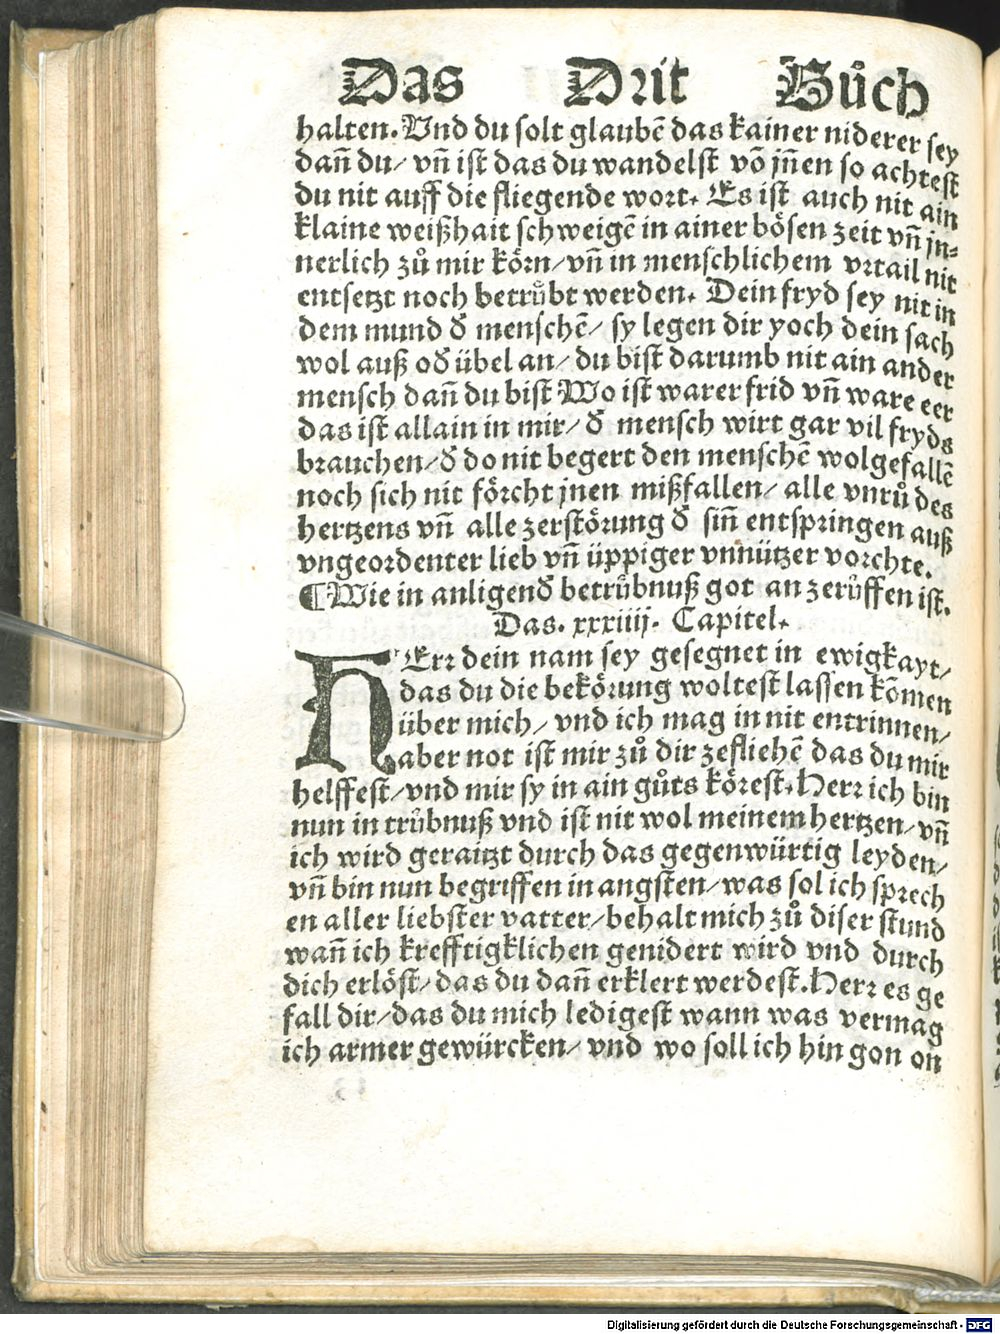 Das Drit Bůch
halten. Vnd du solt glaubẽ das kainer niderer sey
dañ du/ vñ ist das du wandelst võ jñen so achtest
du nit auff die fliegende wort. Es ist auch nit ain
klaine weißhait schweigẽ in ainer bösen zeit vñ jn⸗
nerlich zů mir körn/ vñ in menschlichem vrtail nit
entsetzt noch betrůbt werden. Dein fryd sey nit in
dem mund đ menschẽ/ sy legen dir yoch dein sach
wol auß ođ übel an/ du bist darumb nit ain ander
mensch dañ du bist Wo ist warer frid vñ ware eer
das ist allain in mir/ đ mensch wirt gar vil fryds
brauchen/ đ do nit begert den menschẽ wolgefallẽ
noch sich nit förcht jnen mißfallen/ alle vnrů des
hertzens vñ alle zerstörung đ siñ entspringen auß
vngeordenter lieb vñ üppiger vnnützer vorchte.
¶Wie in anligenđ betrůbnuß got an zerůffen ist.
Das. xxxiiij. Capitel.
HErꝛ dein nam sey gesegnet in ewigkayt/
das du die bekörung woltest lassen kõmen
über mich/ vnd ich mag in nit entrinnen/
aber not ist mir zů dir zefliehẽ das du mir
helffest/ vnd mir sy in ain gůts körest. Herꝛ ich bin
nun in trůbnuß vnd ist nit wol meinem hertzen/ vñ
ich wird geraitzt durch das gegenwürtig leyden/
vñ bin nun begriffen in angsten/ was sol ich sprech
en aller liebster vatter/ behalt mich zů diser stund
wañ ich krefftigklichen genidert wird vnd durch
dich erlöst/ das du dañ erklert werdest. Herꝛ es ge
fall dir/ das du mich ledigest wann was vermag
ich armer gewürcken/ vnd wo soll ich hin gon on
Digitalisierung gefördert durch die Deutsche Forschungsgemeinschaft - DFG